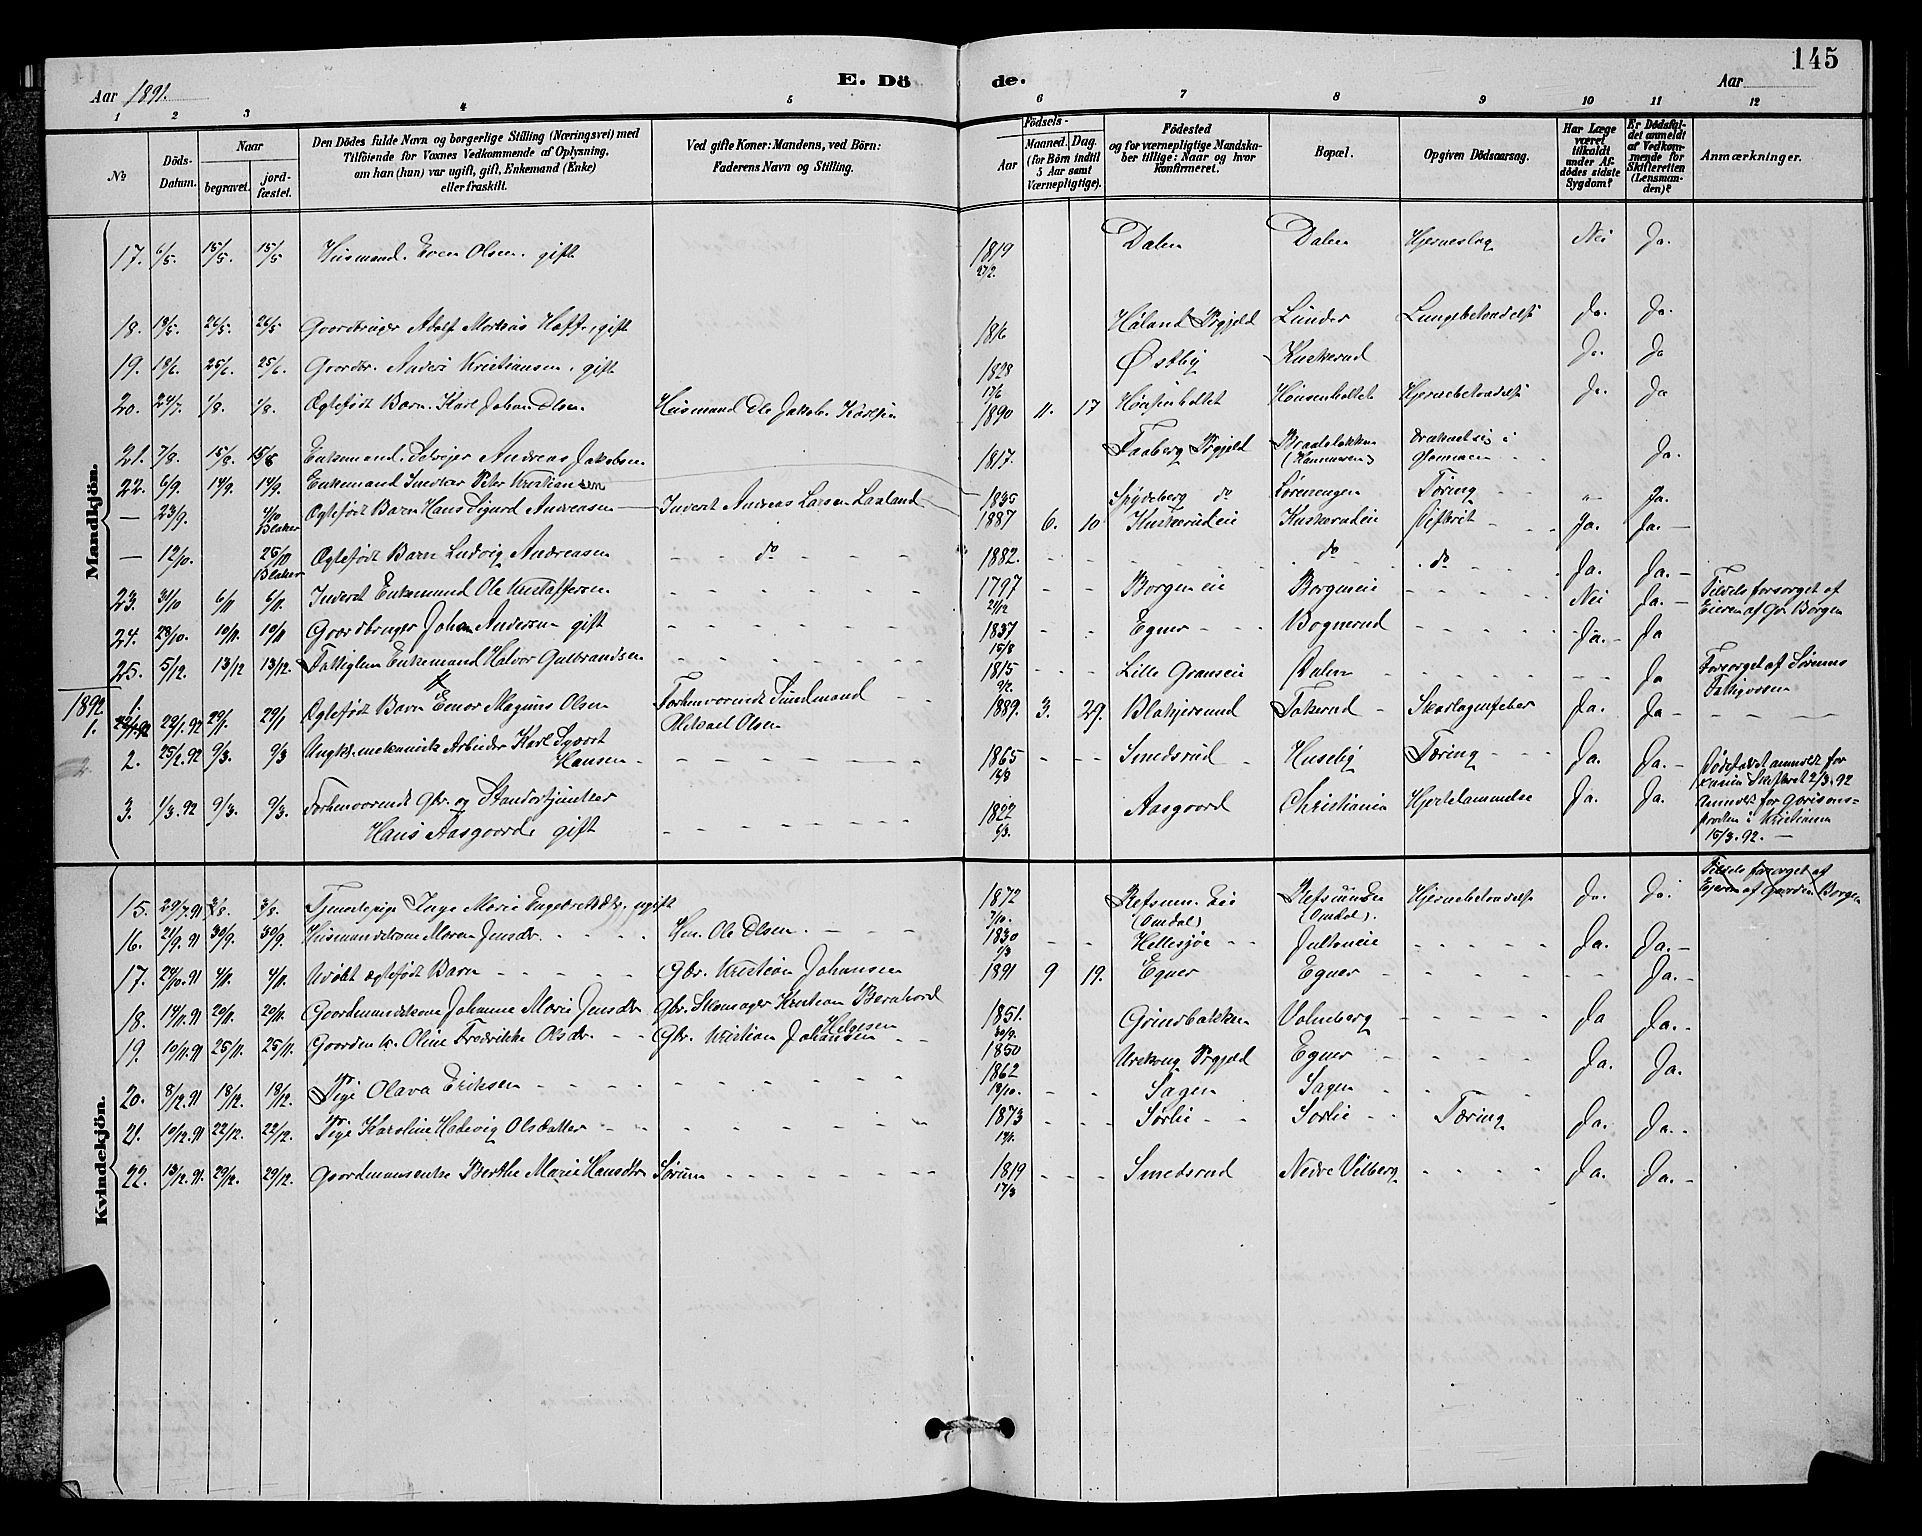 145
Aar 1891.
E. Dö
de.
Aar
1 2 3 4 5 6 7 8 9 10 11 12
No
Döds-Datum.
Naar
begravet.
jord-fæstet.
Den Dödes fulde Navn og borgerlige Stilling (Næringsvei) med
Tilföiende for Voxnes Vedkommende af Oplysning,
om han (hun) var ugift, gift, Enkemand (Enke)
eller fraskilt.
Ved gifte Koner: Mandens, ved Börn:
Faderens Navn og Stilling.
Födsels-
Aar
Maaned. Dag.
(for Börn indtil
5 Aar samt
Værnepligtige).
Födested
og for værnepligtige Mandska-
ber tillige: Naar og hvor
konfirmeret.
Bopæl.
Opgiven Dödsaarsag.
Har Læge
været
tilkaldt
under Af-
dödes sidste
Sygdom?
Er Dödsfal-
det anmeldt
af Vedkom-
mende for
Skifteretten
(Lensman-
den)?
Anmærkninger.
Mandkjön.
17. 6/5. 15/5. 15/5 Husmand. Even Olsen. gift 1819 27/2. Dalen Dalen Hjerneslag Nei Ja.
18. 19/5. 26/5. 26/5 Gaardbruger Adolf Hoff, gift 1816 Høland Prgjeld Lunder Lungebetændelse Ja. Ja.
19. 18/6. 25/6. 25/6. Gaardbr. Anders Kristiansen. gift 1828 17/6 Østby Kuskerud Ja. Ja
20. 24/7. 1/8. 1/8. Ægtefødt Barn. Karl Johan Olsen Husmand Ole Jakob Karlsen 1890 11. 17 Hönsenholtet Hjernebetændelse Ja. Ja
21. 7/8. 15/8. 15/8 Enkemand. Andreas Jakobsen 1817. Faaberg Prgjeld Ja.
22. 6/9. 14/9. 14/9. Enkemand Peter Kristiansen 1835 Spydeberg do Sörenengen Tæring Ja.
— 23/9. 4/10 Blaker Ægtefødt Barn Hans Sigurd Andreasen Inderst Andreas Larsen Laaland 1887 6. 10 Kuskerudeie Kuskerudeie Difterit Ja. Ja. —
— 12/10. 25/10 Blaker Ægtefødt Barn Ludvig Andreasen do 1882. do do Ja. Ja. —
23. 31/10 6/11 6/11. Inderst Enkemand Ole Kristoffersen 1797 21/12 Borgen eie Borgeneie Nei Ja. — Tildels forsørget af Eieren af Gr. Borgen
24. 28/10. 10/11. 10/11 Gaardbruger Johan Andersen gift 1837 15/8 Egner Bognerud Ja. Ja
25. 5/12. 13/12 13/12. Fattiglem Enkemand Halvor Gulbrandsen 1815 9/2. Lille Granseie Dalen Ja Forsørget af Sørums Fattigvæsen
1892
1. 22/1.92 29/1. 29/1 Ægtefødt Barn Einar Magnus Olsen Forhenværende Sundmand Mikael Olsen 1889. 3. 29. Blakjersund Fakerud Skarlagensfeber Ja. Ja —
2. 25/2.92 9/3. 9/3 Ungk. mekanisk Arbeider Karl Syvert Hansen 1865 Smedsrud Huseby Tæring Ja. Ja. — Dødsfaldet anmeldt for Skifteret 2/3.92
3. 1/3.92 9/3. 9/3. Forhenværende Gbr. og Standartjunker Hans Aasgaard gift 1822 6/3. Aasgaard Christiania Hjertelammelse Ja. Ja. Anmeldt for i Kristiania 15/3.92. —
Kvindekjön.
15. 29/7.91 3/8. 3/8. Tjenestepige Inga Marie Engebretsdtr. ugift 1872 7/10. Refsum Eie (Omdal) Refsum Eie (Omdal). Hjernebetændelse Ja. Ja. Tildels forsørget af Eieren af Gaarden Borgen
16. 21/9.91 30/9. 30/9. Husmandskone Maren Jensdr. Hm. Ole Olsen 1830 1/3 Hellesjøe Jultoneie Ja. Ja. —
17. 24/10.91 4/11. 4/11. Udøbt ægtefødt Barn Gbr. Kristian Johansen 1891 9 19. Egner Egner Ja. —
18. 14/11.91 20/11. 20/11. Gaardmandskone Johanne Marie Jensdr. Gbr. Skomager Kristian Bernhard Helgesen 1851. 30/9. Grindbakken Valmberg Ja Ja. —
19. 19/11.91 25/11. 25/11. Gaardm. k. Oline Fredrikke Olsdr. Gbr. Kristian Johansen 1850 Urskoug Prgjeld Egner Ja. Ja.
20. 8/12.91 18/12. 18/12. Pige Olava Eriksen 1862 18/10. Sagen Sagen
21. 19/12.91 22/12. 22/12. Pige Karoline Hedevig Olsdatter 1873 Sørlie Sørlie Tæring Ja. Ja. -
22. 13/12.91. 29/12. 29/12. Gaardmandsenke Berthe Marie Hansdtr. Sørum 1819 17/3 Smedsrud Nedre Vilberg Ja. Ja. -